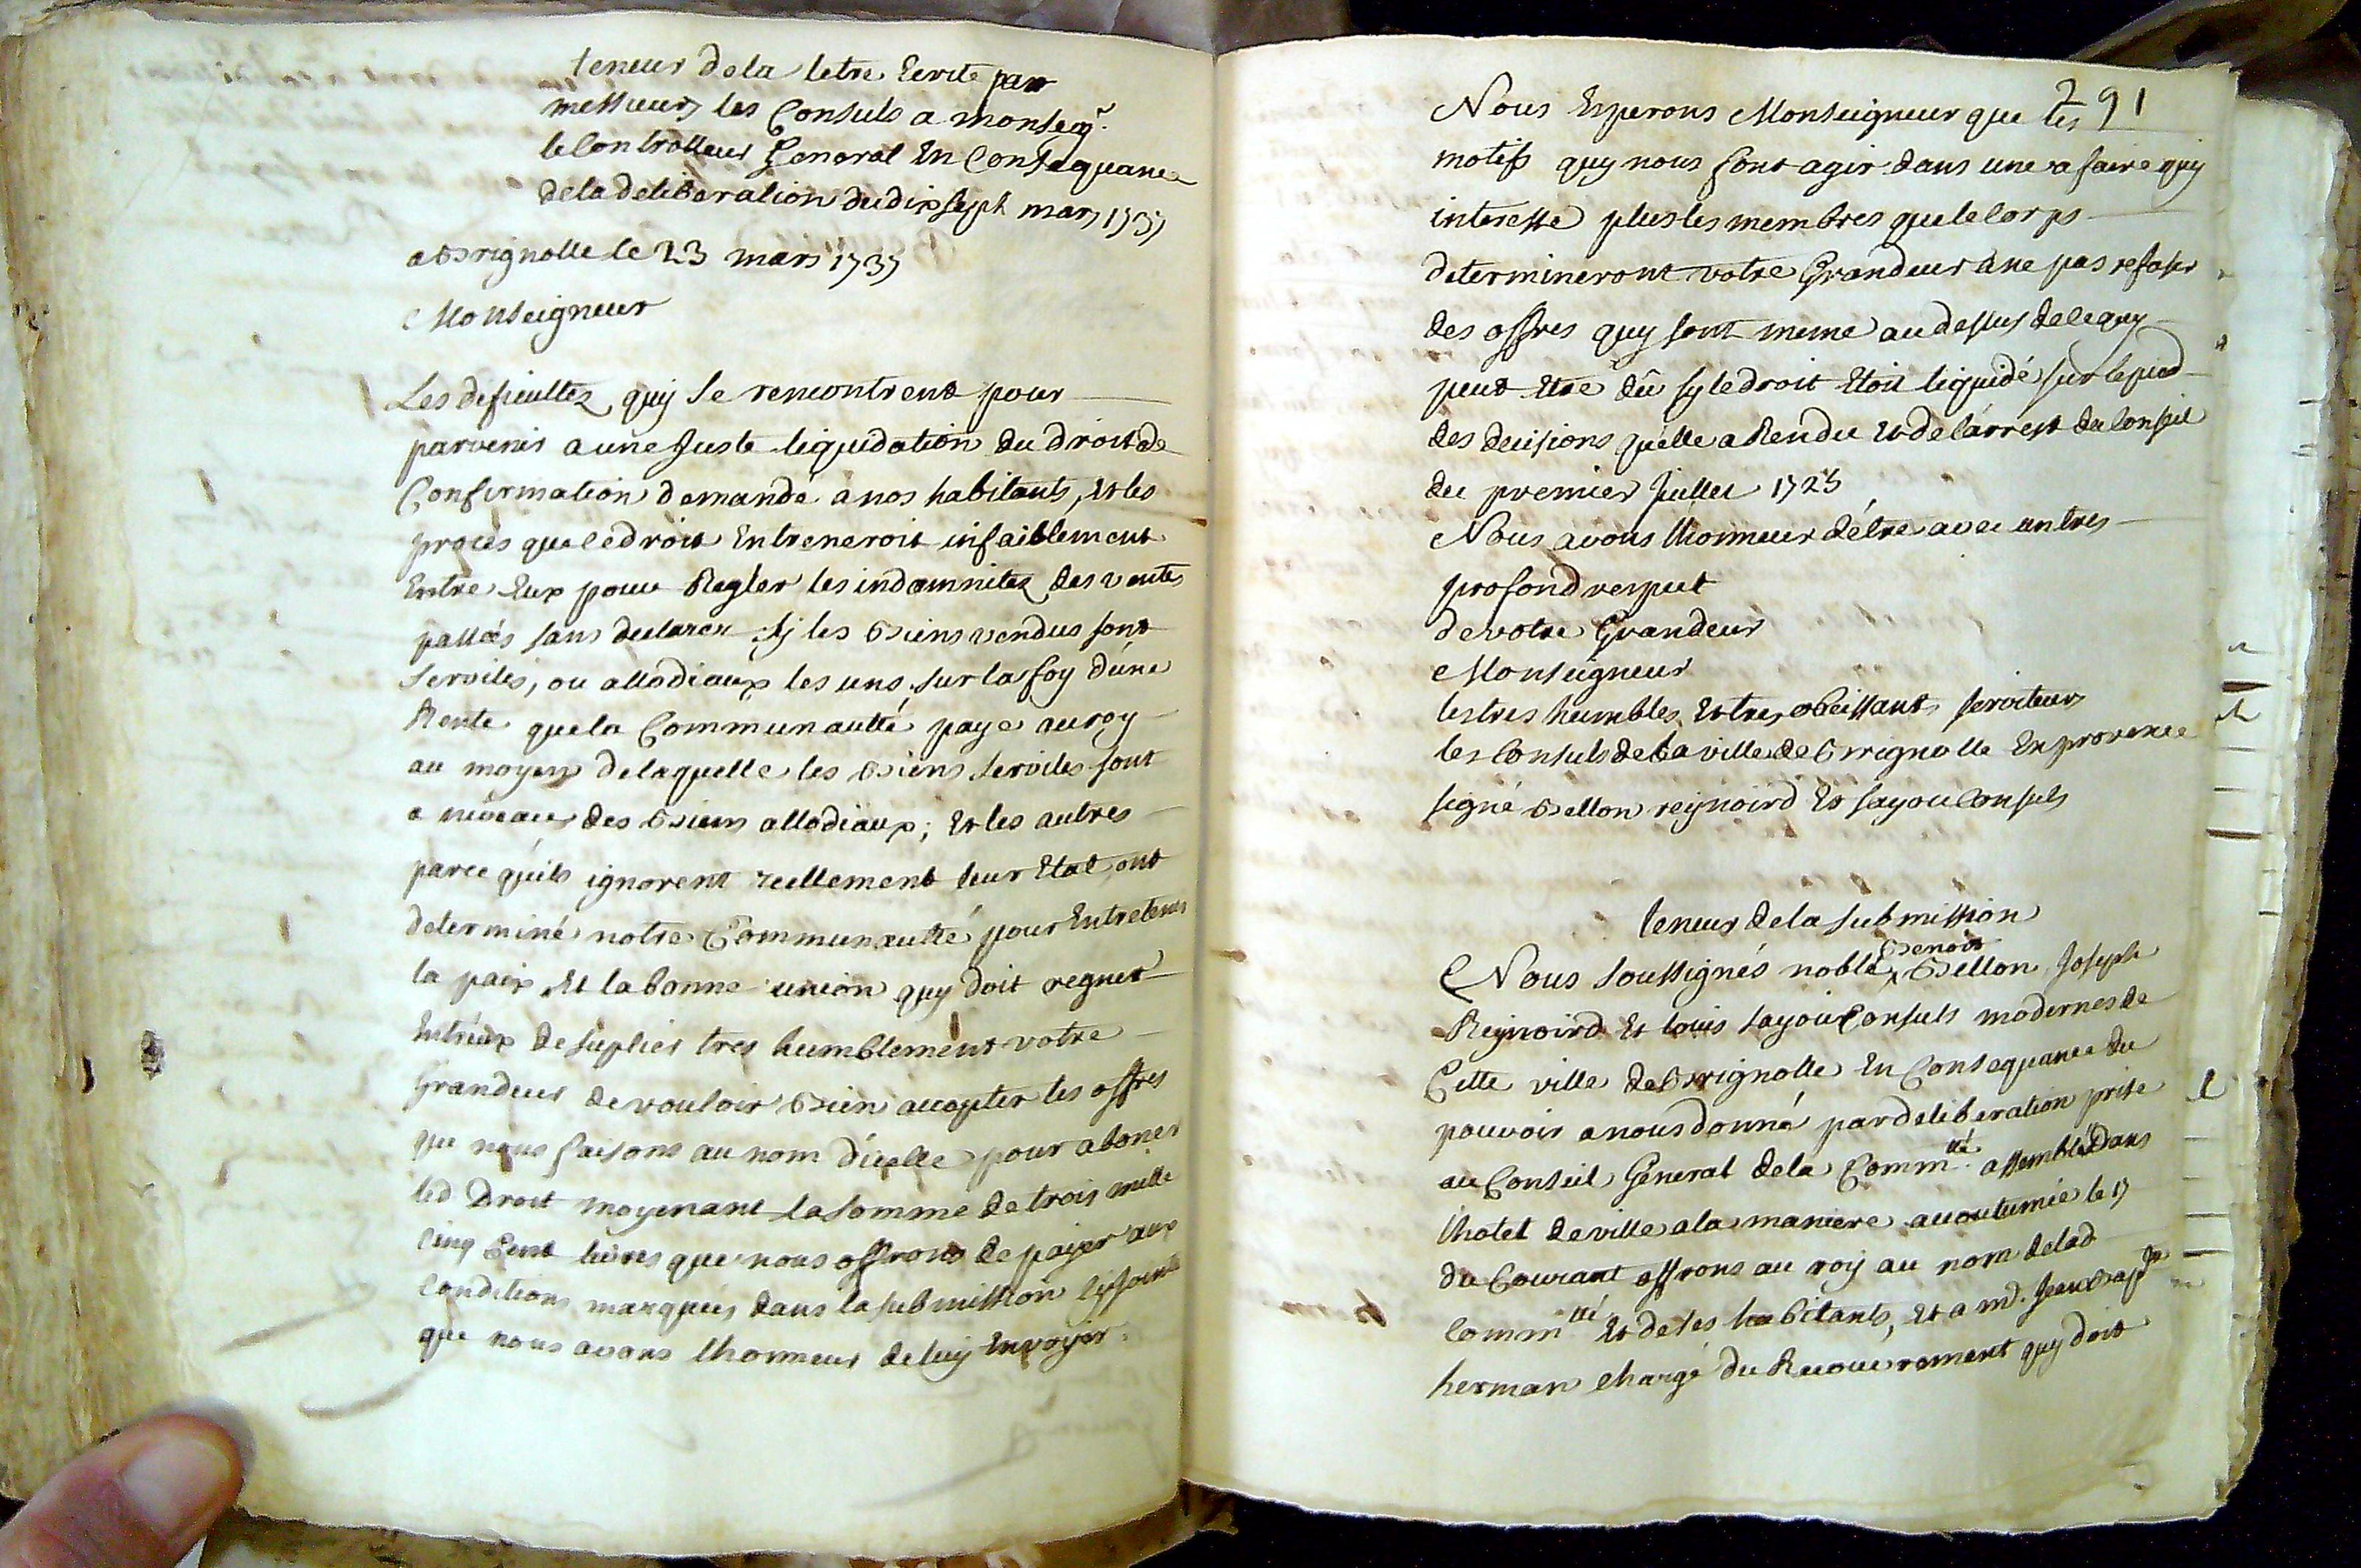 teneur de la letre Ecrite par
messieurs les Consuls a monseigr.
le Controlleur General En Consequance
de la deliberation du dix sept mars 1737
a Brignolle le 23 mars 1737
Monseigneur
Les deficultez quy se rencontrent pour
parvenir a une Juste liquidation du droit de
Confirmation demandé a nos habitants, Et les
procès que ce droit Entreneroit infailblement
Entre Eux pour Regler les indamnitez des ventes
passées sans declarer sy les Biens vendus sont
serviles, ou allodiaux les uns sur la foy d'une
Rente que la Communautté paye au roy
au moyen de laquelle les Biens serviles sont
a niveau des Biens allodiaux; Et les autres
parce qu'ils ignorent reellement leur Etat ont
determiné notre Communautté pour Entretenir
la paix Et la bonne union quy doit regner
Entr'eux de suplier tres humblement votre
Grandeur de vouloir Bien accepter les offres
que nous faisons au nom d'icelle pour aboner
led Droit moyenant la somme de trois mille
cinq Cent livres que nous offrons de payer aux
conditions marquées dans la submission cy jointe
que nous avons lhonneur de luy Envoyer.
291
Nous Esperons Monseigneur que les
motifs quy nous font agir dans une afaire quy
interesse plus les membres que le Corps
determineront votre Grandeur a ne pas refuser
des offres quy sont meme au dessus de ce quy
peut Etre dû sy le droit Etoit liquidé sur le pied
des decisions qu'elle a Rendu Et de l'arrest du Conseil
du premier Juillet 1725
Nous avons lhonneur d'être avec un tres
profond respect
de votre Grandeur
Monseigneur
les tres humbles Et tres obeissants serviteurs
les Consuls de la ville de Brignolle En provence
signé Bellon reynoird Et sayou Consuls
teneur de la submission
Nous soussignés noble Benoit Bellon Joseph
Reynoird Et louis sayou Consuls modernes de
Cette ville de Brignolle En Consequance du
pouvoir a nous donné par deliberation prise
au Conseil General de la Commté. assemblé Dans
lhotel de ville a la maniere accoutumée le 17
du Courant offrons au roy au nom de lad
Commté Et de ses habitants, Et a md. Jean Bapte
herman chargé du Recouvrement quy doit